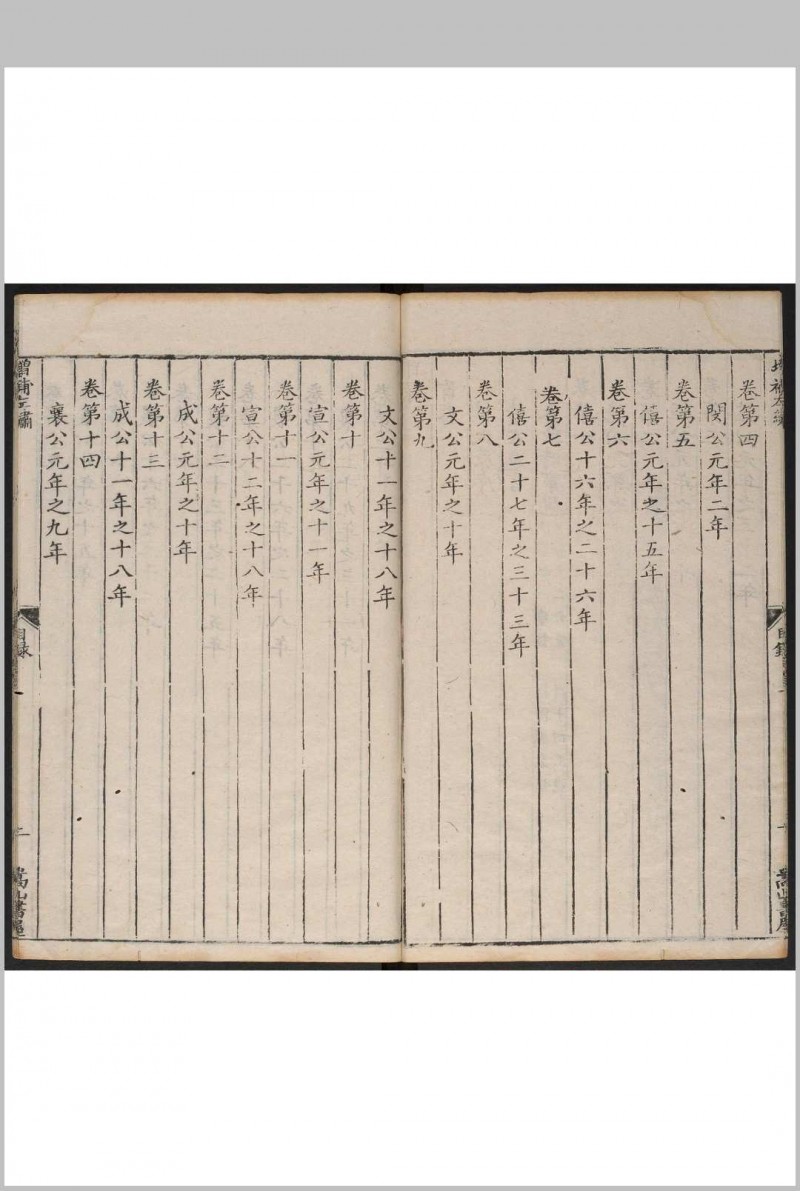 卷第四
閔公元年二年
卷第五
僖公元年之十五年
卷第六
僖公十六年之二十六年
卷第七
僖公二十七年之三十三年
卷第八
文公元年之十年
卷第九
文公十一年之十八年
卷第十
宣公元年之十一年
卷第十一
宣公十二年之十八年
卷第十二
成公元年之十年
卷第十三
成公十一年之十八年
卷第十四
襄公元年之九年
目錄
嵩山書屋